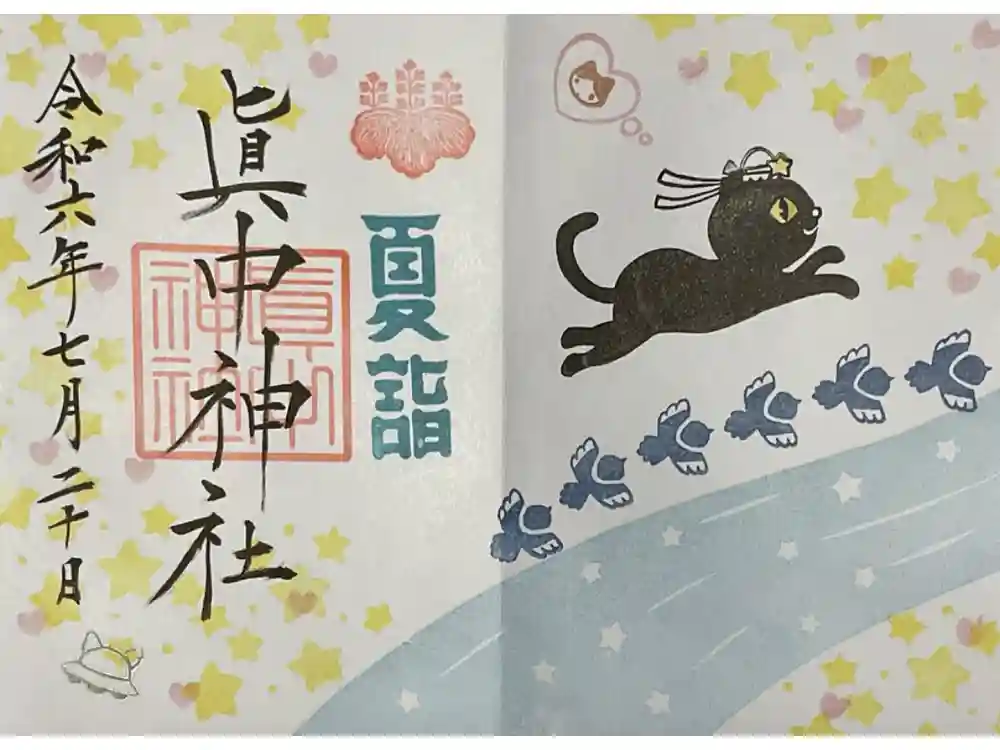 夏詣
眞中神社
眞中神社
令和六年七月二十日